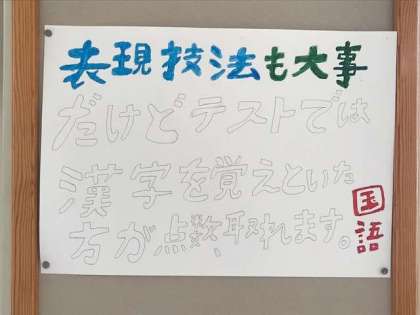 表現技法も大事
だけどテストでは
漢字を覚えといた
方が点数、取れます。
国語